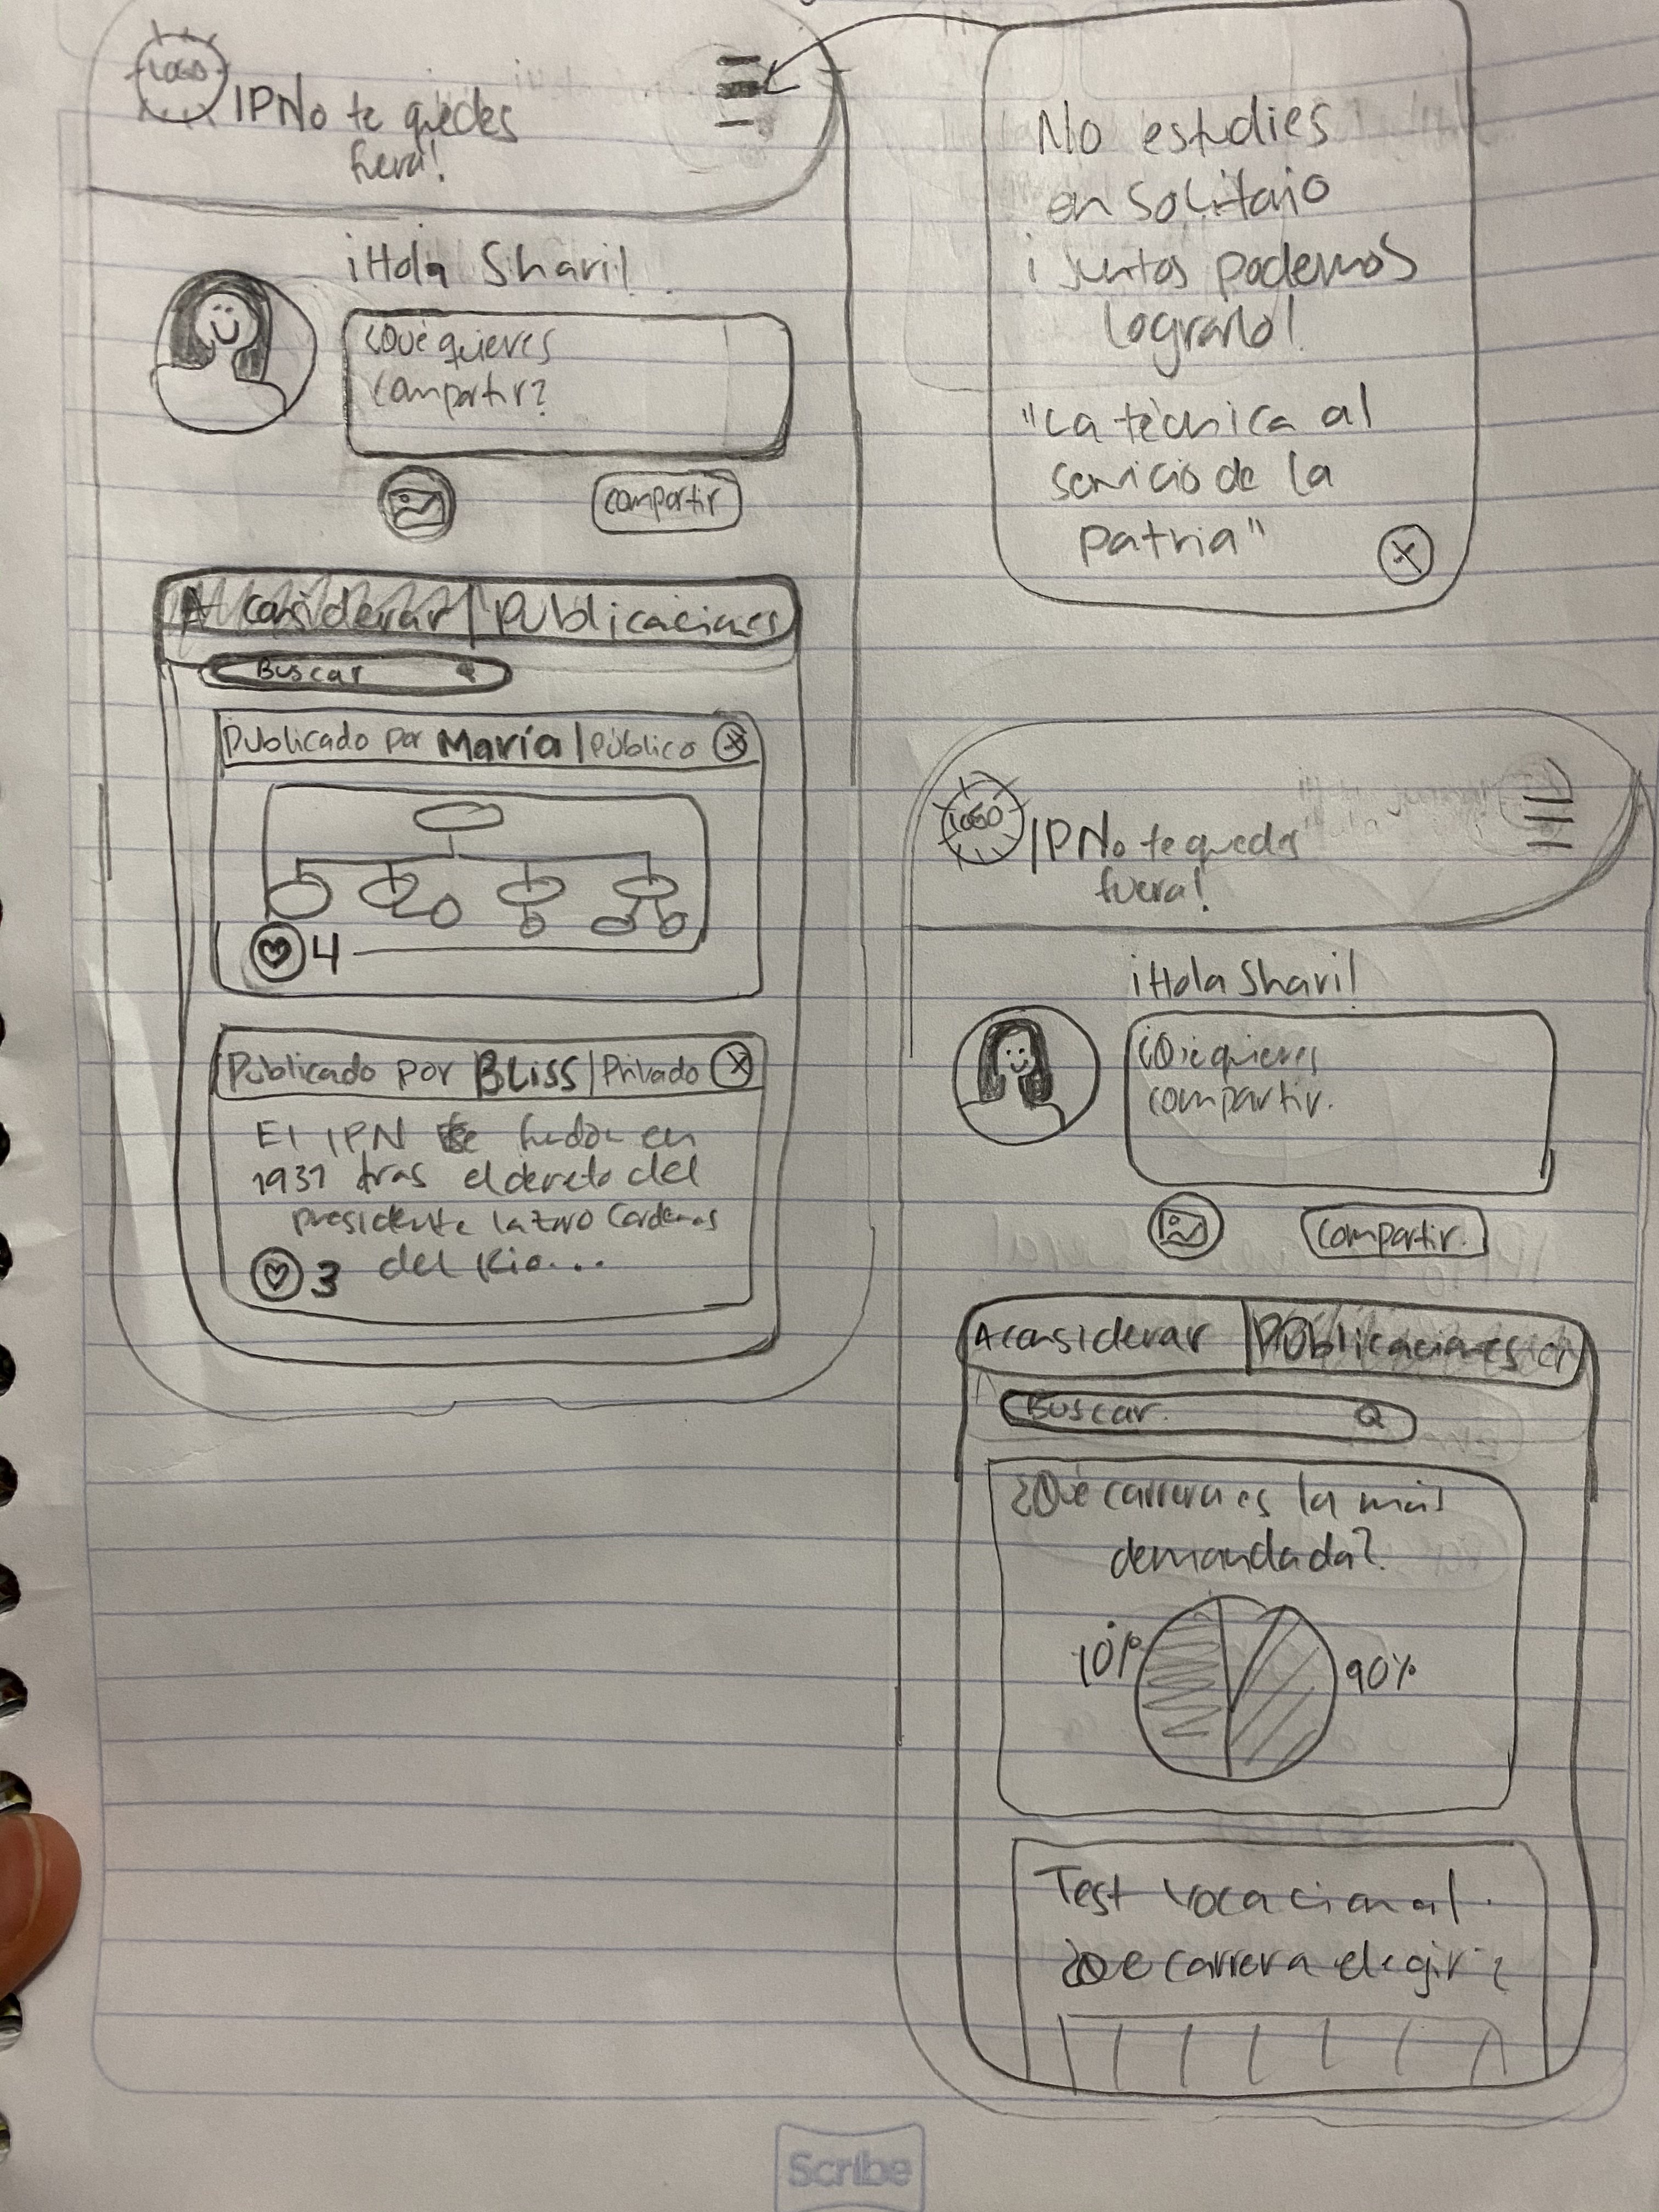 LOGO
IPNo te quedes
fuera!
¡Hola Shari!
¿Qué quieres
compartir?
compartir
A considerar | Publicaciones
Buscar
Publicado por María | Público X
4
Publicado por Bliss | Privado X
El IPN se fundo en
1937 tras el decreto del
presidente lazaro Cardenas
del Rio...
3
No estudies
en solitario
¡Juntos podemos
lograrlo!
"La técnica al
servicio de la
patria"
X
LOGO
IPNo te quedes
fuera!
¡Hola Shari!
¿Qué quieres
compartir.
Compartir.
A considerar | Publicaciones
Buscar.
¿Qué carrera es la más
demandada?
10%
90%
Test vocacional.
¿Que carrera elegir?
Scribe